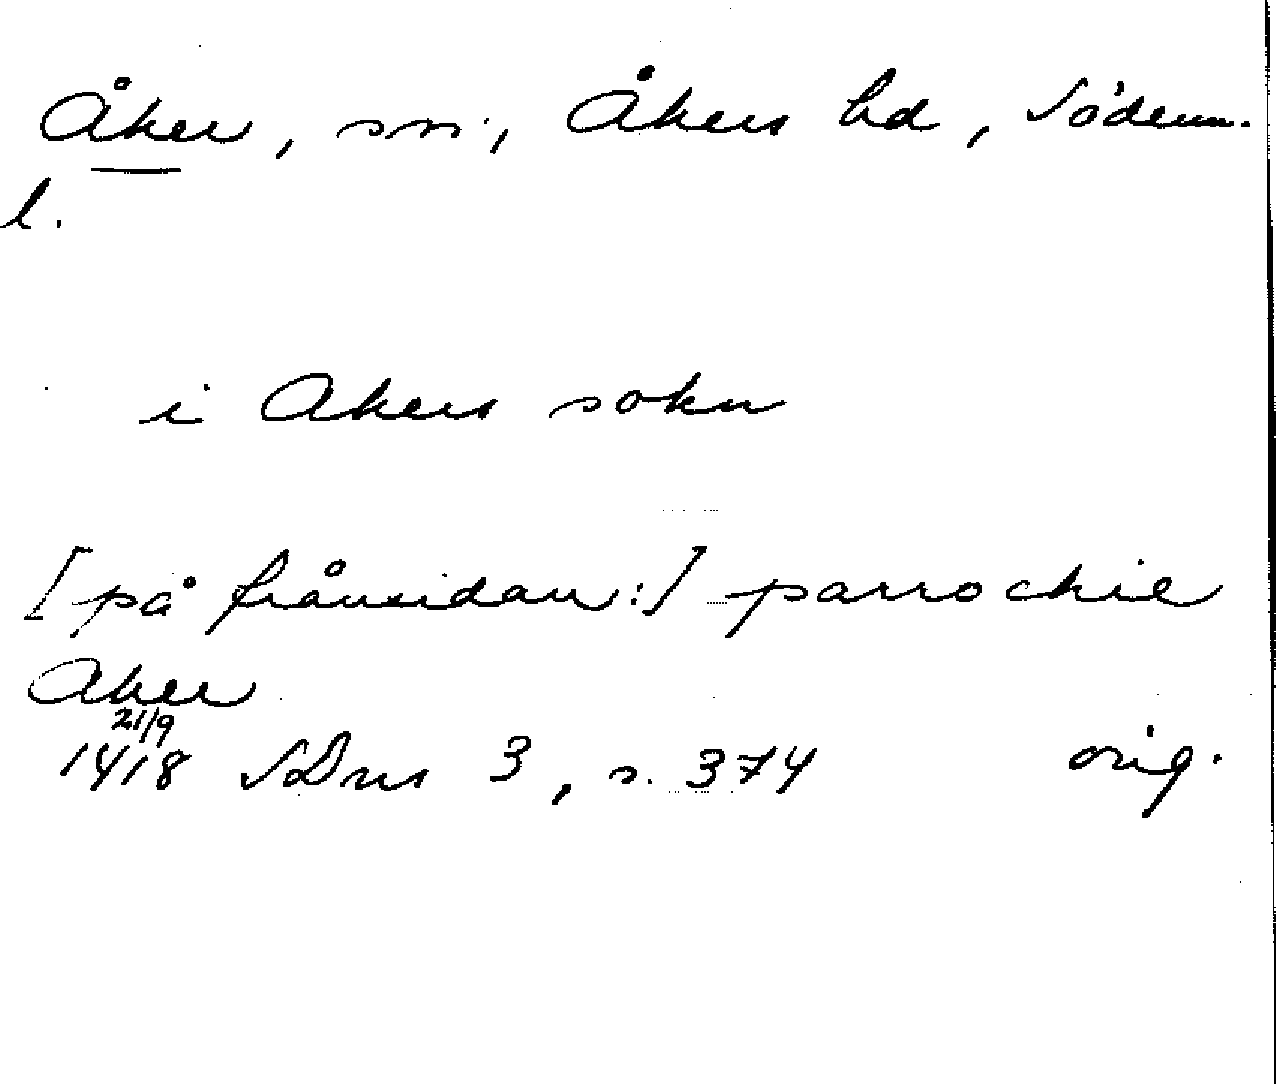 Åker, sn, Åkers hd, Söderm.
l.
i Akers sokn
[på frånsidan:] parrochie
Aker
21/9
1418 SDns 3, s. 374 orig.